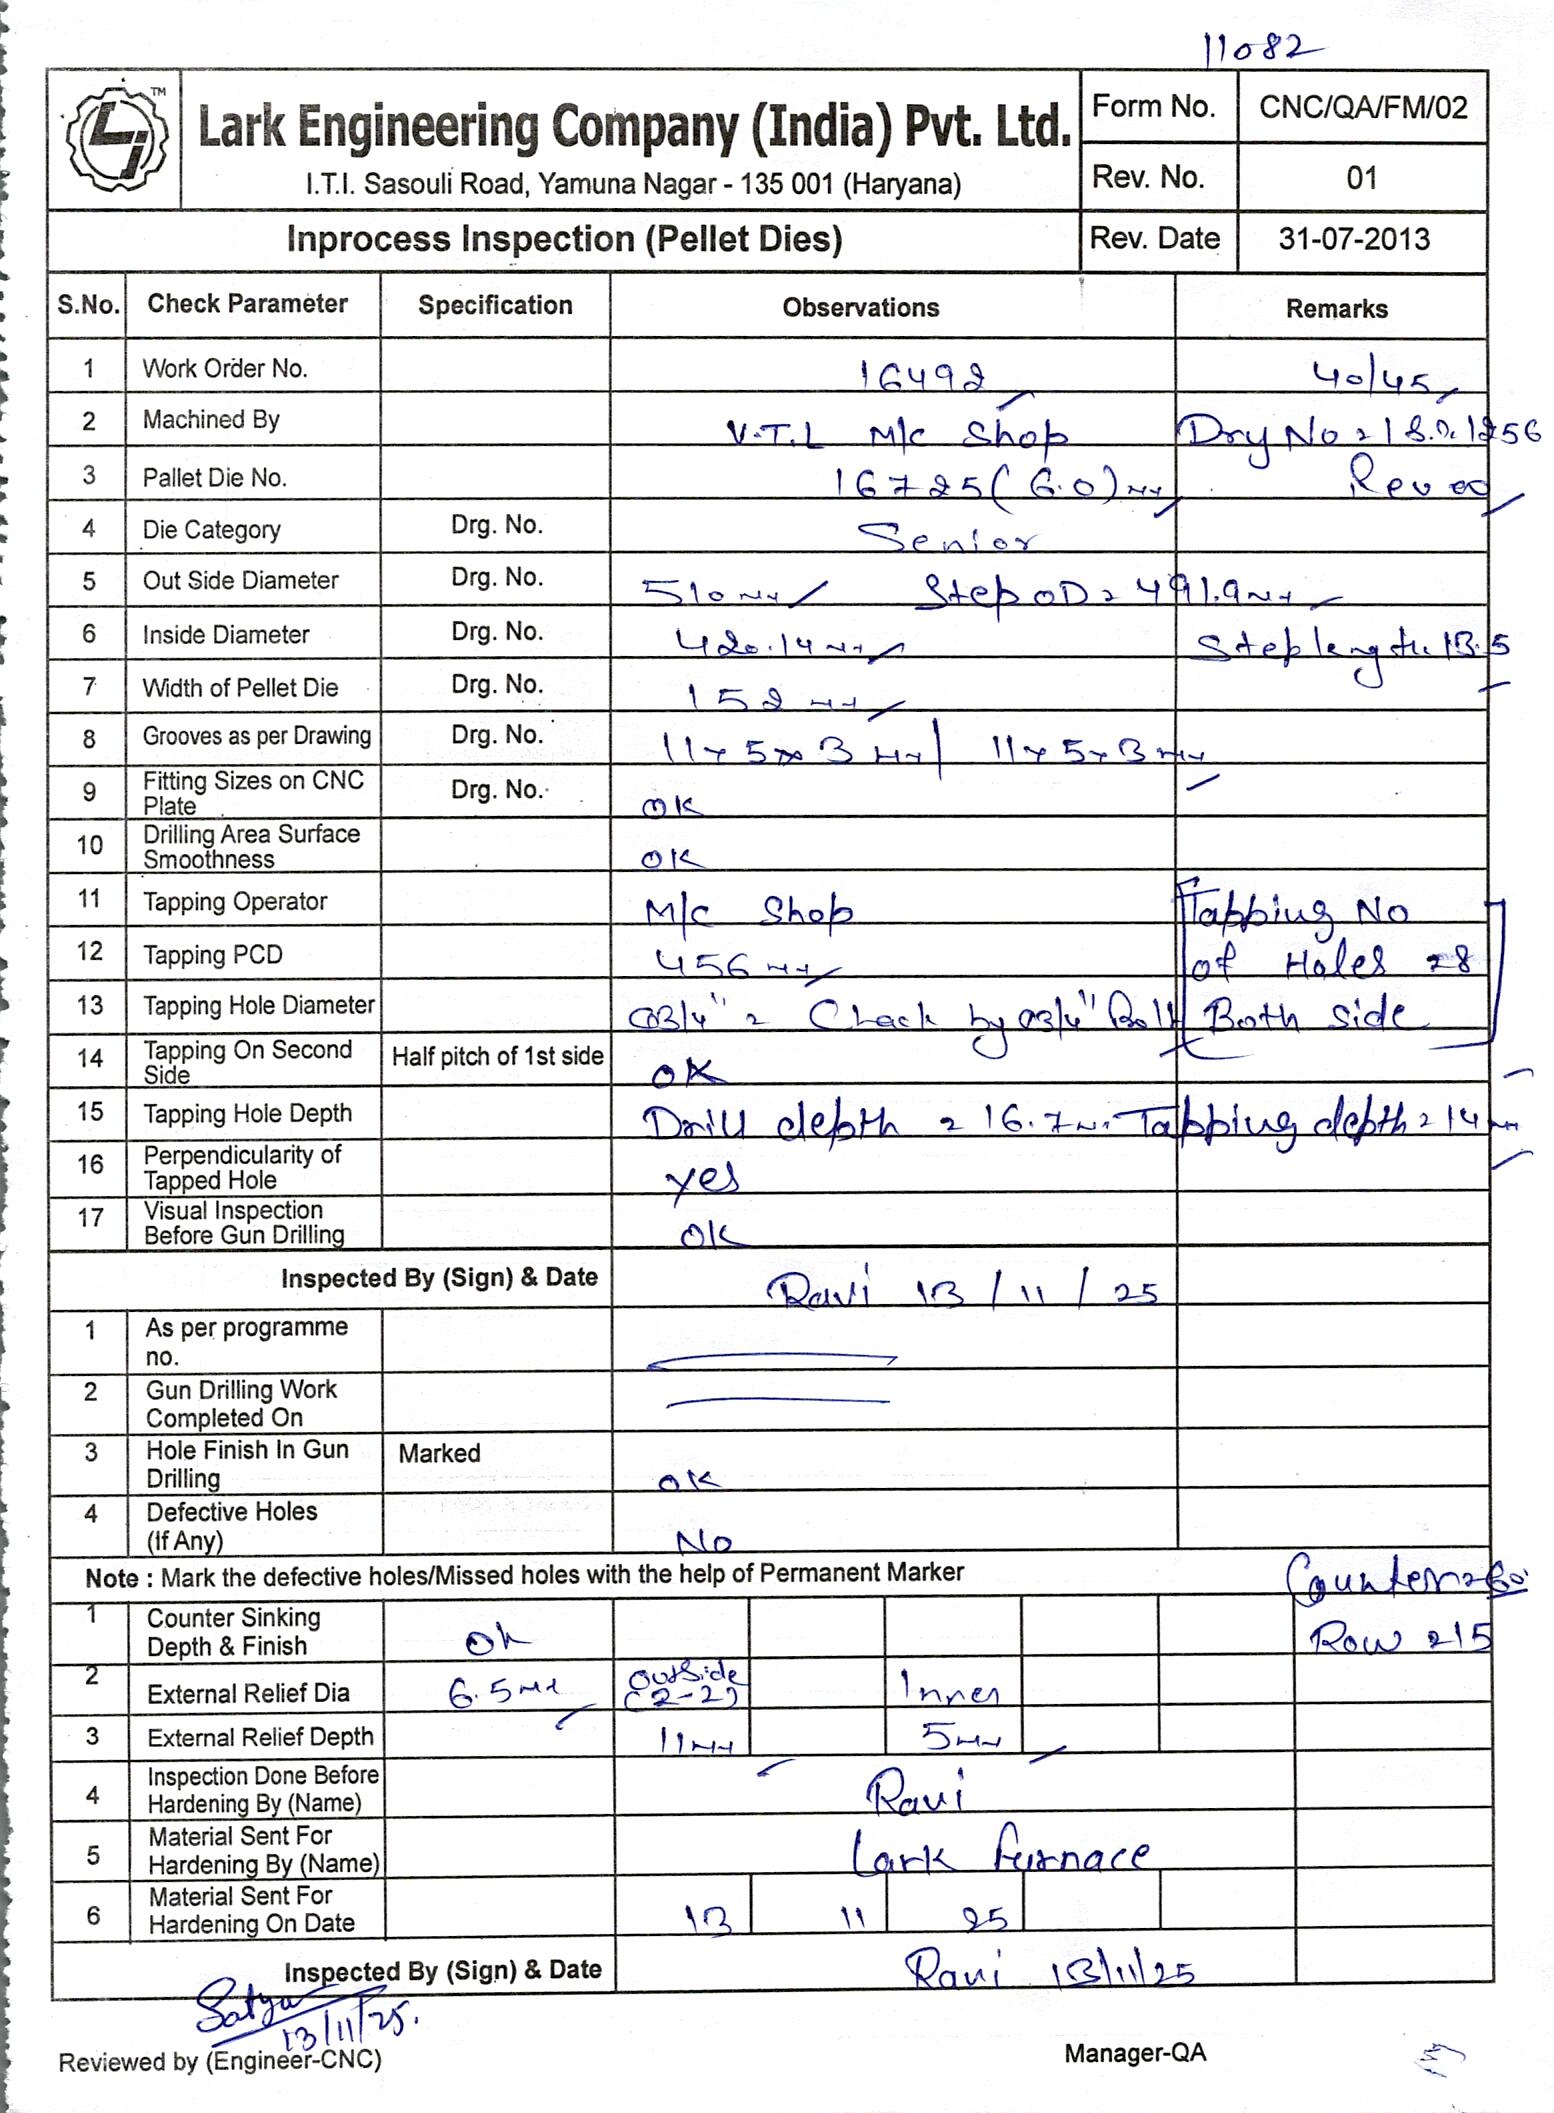 11082
TM
Lark Engineering Company (India) Pvt. Ltd.
I.T.I. Sasouli Road, Yamuna Nagar - 135 001 (Haryana)
Form No. CNC/QA/FM/02
Rev. No. 01
Inprocess Inspection (Pellet Dies) Rev. Date 31-07-2013
S.No. Check Parameter Specification Observations Remarks
1 Work Order No. 16492 40/45
2 Machined By V.T.L M/c Shop Drg No = 1 S.D. 1256
3 Pallet Die No. 16725 (6.0) mm Rev 00
4 Die Category Drg. No. Senior
5 Out Side Diameter Drg. No. 510 mm Step OD = 491.9 mm
6 Inside Diameter Drg. No. 420.14 mm Step length 13.5
7 Width of Pellet Die Drg. No. 152 mm
8 Grooves as per Drawing Drg. No. 11 x 5 x 3 mm | 11 x 5 x 3 mm
9 Fitting Sizes on CNC Plate Drg. No. OK
10 Drilling Area Surface Smoothness OK
11 Tapping Operator M/c Shop Tapping No
12 Tapping PCD 456 mm of Holes = 8
13 Tapping Hole Diameter 03/4" = Check by 03/4" Bolt Both side
14 Tapping On Second Side Half pitch of 1st side OK
15 Tapping Hole Depth Drill depth = 16.7 mm Tapping depth = 14 mm
16 Perpendicularity of Tapped Hole yes
17 Visual Inspection Before Gun Drilling OK
Inspected By (Sign) & Date Ravi 13/11/25
1 As per programme no.
2 Gun Drilling Work Completed On
3 Hole Finish In Gun Drilling Marked OK
4 Defective Holes (If Any) No
Note : Mark the defective holes/Missed holes with the help of Permanent Marker Counter = 60°
1 Counter Sinking Depth & Finish OK Row = 15
2 External Relief Dia 6.5 mm Outside (2-2) Inner
3 External Relief Depth 11 mm 5 mm
4 Inspection Done Before Hardening By (Name) Ravi
5 Material Sent For Hardening By (Name) Lark furnace
6 Material Sent For Hardening On Date 13 11 25
Inspected By (Sign) & Date Ravi 13/11/25
Satya
13/11/25.
Reviewed by (Engineer-CNC) Manager-QA